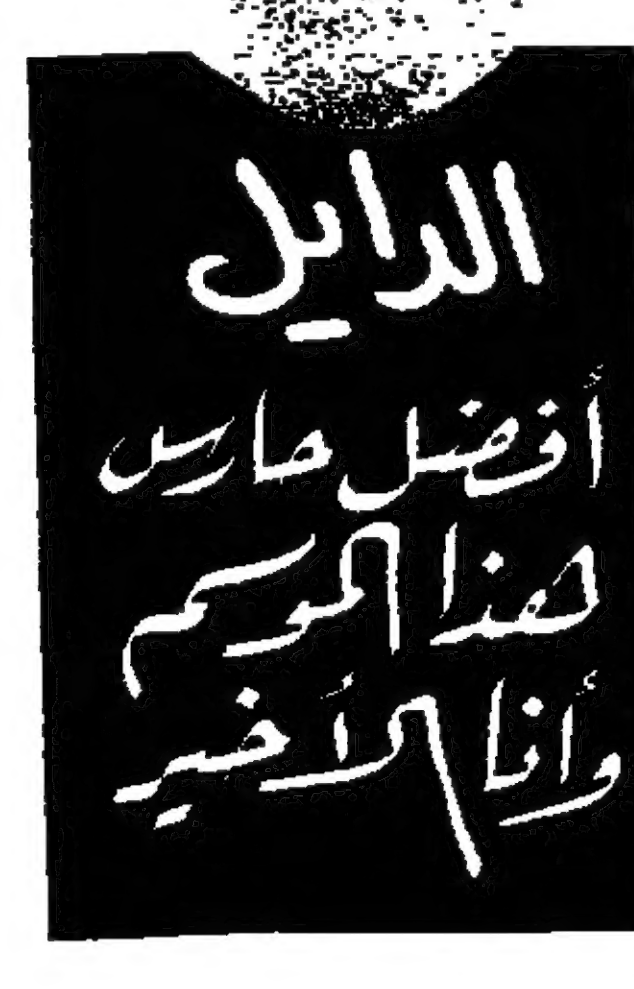 الدايل
أفضل حارس
هذا الموسم
وأنا الأخير